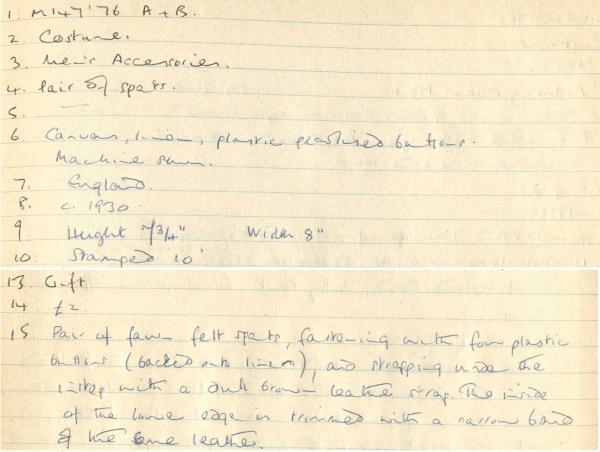 1. M147'76 A + B.
2. Costume.
3. Men's Accessories.
4. Pair of spats.
5. —
6. Canvas, linen, plastic pearlised buttons.
Machine sewn.
7. England.
8. c. 1930.
9 Height 7 3/4" Width 8"
10. Stamped 10
13. Gift
14. £2.
15 Pair of fawn felt spats, fastening with four plastic
buttons (backed onto linen), and strapping under the
instep with a dull brown leather strap. The inside
of the lower edge is trimmed with a narrow band
of the same leather.